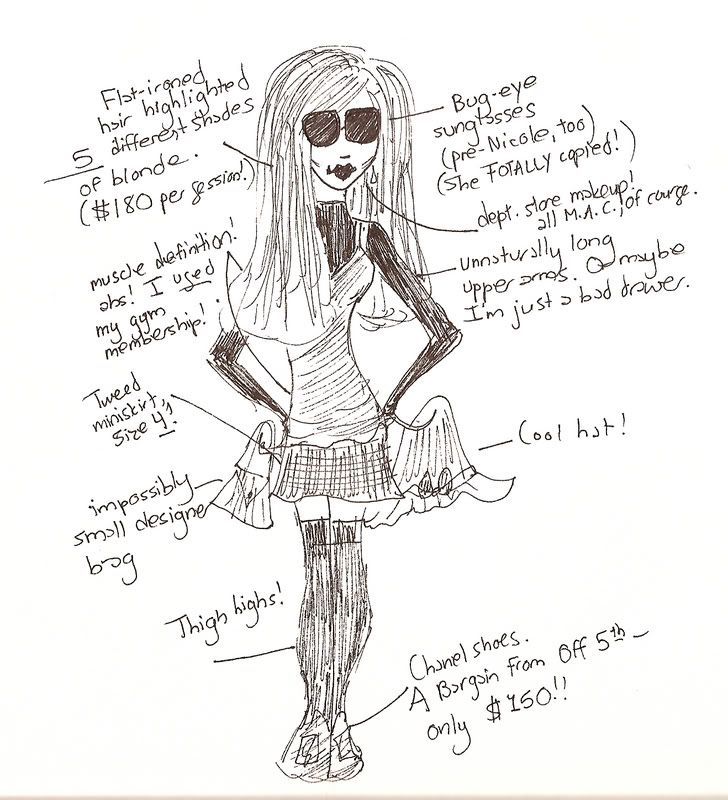 Flat-ironed
hair highlighted
5 different shades
of blonde.
($180 per session!)
Bug-eye
sunglasses
(pre-Nicole, too)
(She TOTALLY copied!)
dept. store makeup!
all M.A.C., of course.
muscle definition!
abs! I used
my gym
membership!
unnaturally long
upper arms. Or maybe
I'm just a bad drawer.
Tweed
miniskirt,
size 4!
Cool hat!
impossibly
small designer
bag
Thigh highs!
Chanel shoes.
A Bargain from Off 5th -
only $150!!